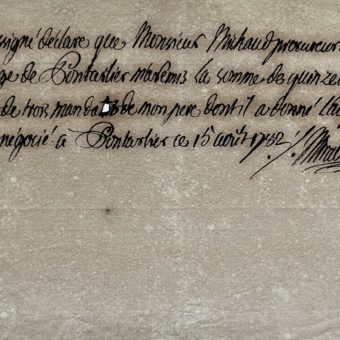 signé déclare que Monsieur Michaud procureur
ge de Pontarlier m'a remis la somme de quinze
de trois mandats de mon pere dont il a donné l'ac
négocié a Pontarlier ce 15 août 1782